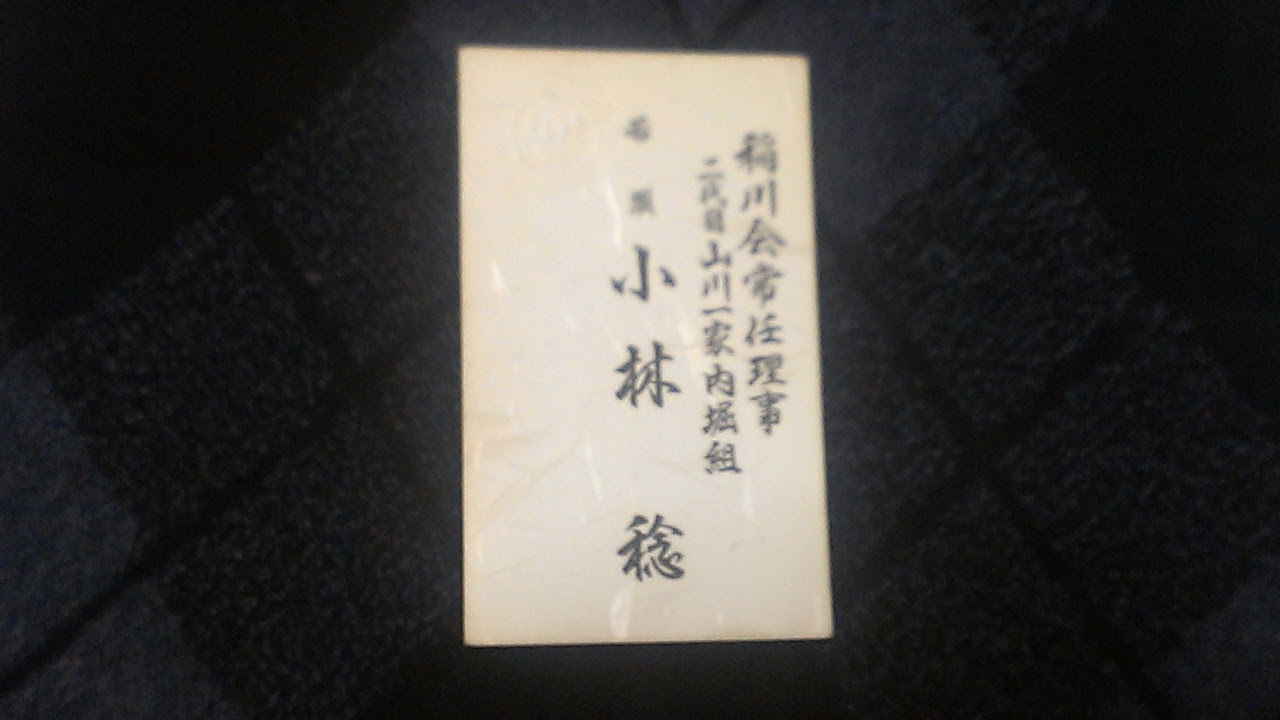 稲川会常任理事
二代目山川一家内堀組
若頭
小林稔